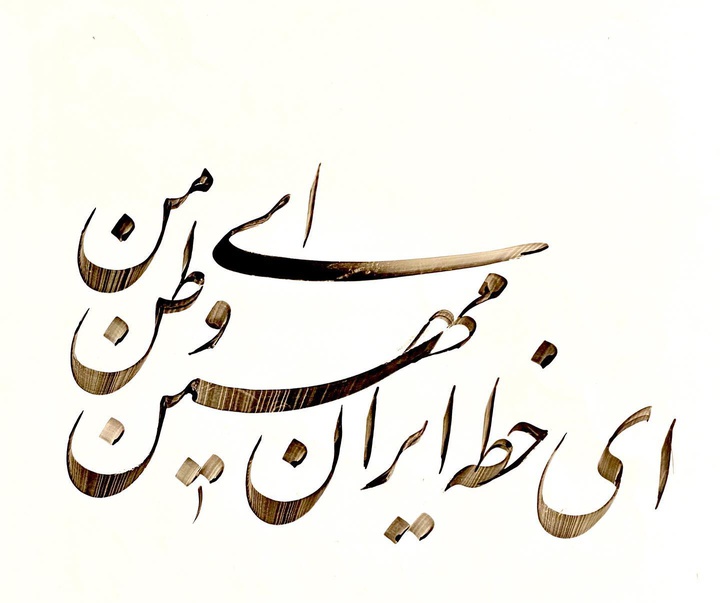 ای خطه ایران مهین
ای وطن من